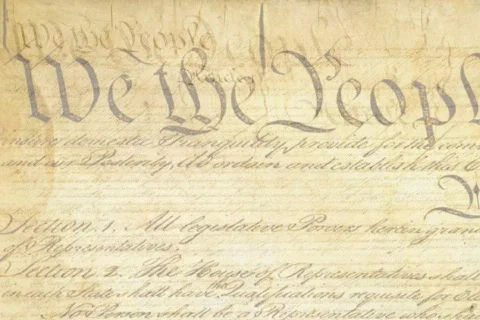 We the People
We the People
insure domestic Tranquility, provide for the com
and our Posterity, do ordain and establish this C
Section. 1. All legislative Powers herein gran
of Representatives.
Section. 2. The House of Representatives shall
in each State shall have Qualifications requisite for Ele
No Person shall be a Representative who s